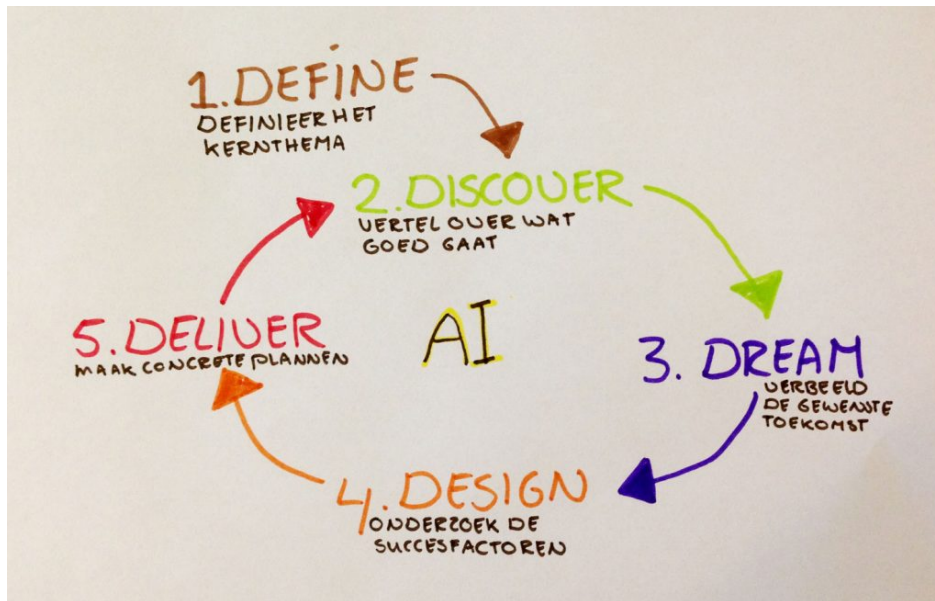 1. DEFINE
DEFINIEER HET
KERNTHEMA
2. DISCOVER
VERTEL OVER WAT
GOED GAAT
AI
3. DREAM
VERBEELD
DE GEWENSTE
TOEKOMST
4. DESIGN
ONDERZOEK DE
SUCCESFACTOREN
5. DELIVER
MAAK CONCRETE PLANNEN